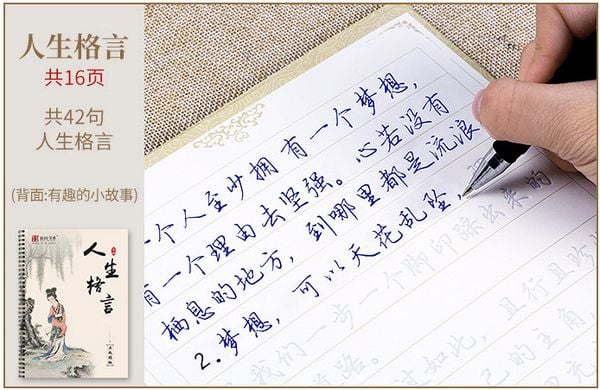 人生格言
共16页
共42句
人生格言
(背面:有趣的小故事)
人生
格言
一个人至少拥有一个梦想,
有一个理由去坚强。心若没有
栖息的地方,到哪里都是流浪
2.梦想,可以天花乱坠,
我们一步一个脚印踩出来的
道路。
如此,且行且珍
己的主角,